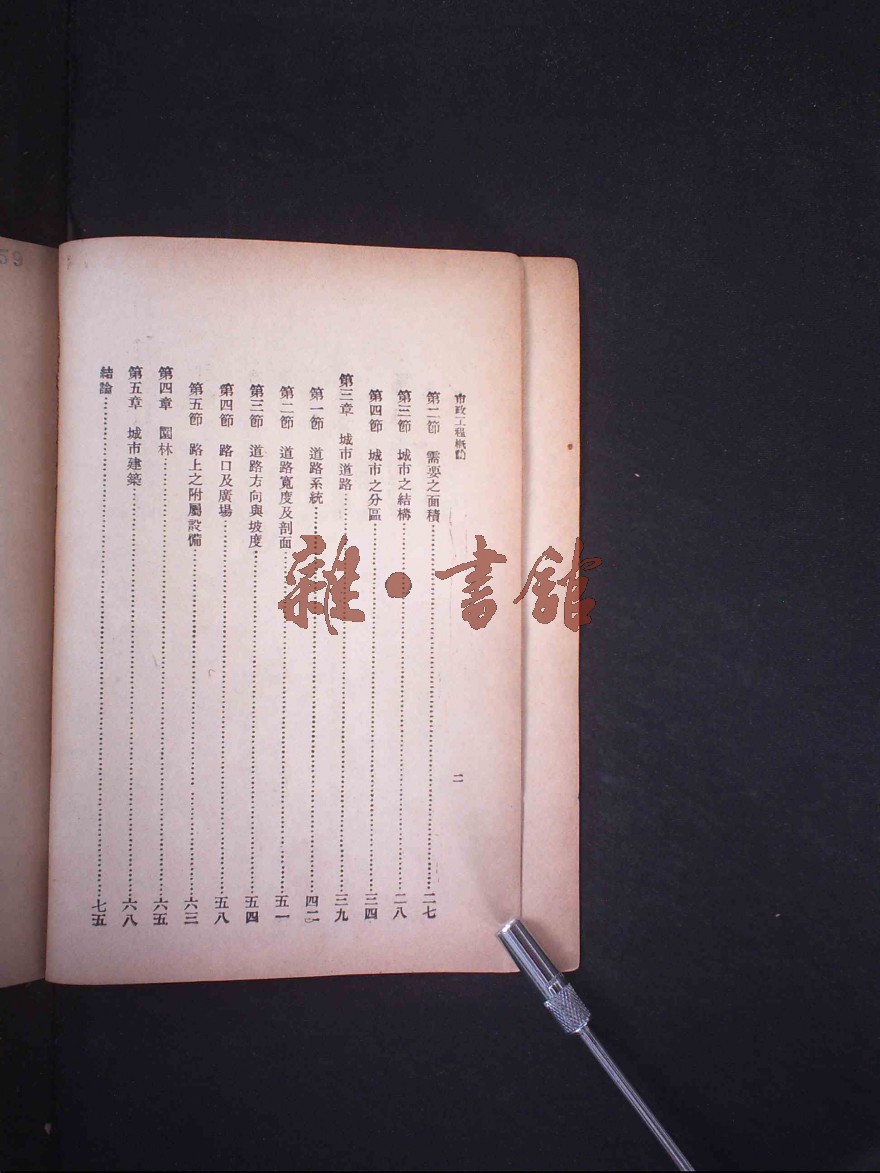 市政工程概論
二
第二節　需要之面積……二七
第三節　城市之結構……二八
第四節　城市之分區……三四
第三章　城市道路……三九
第一節　道路系統……四二
第二節　道路寬度及剖面……五一
第三節　道路方向與坡度……五四
第四節　路口及廣場……五八
第五節　路上之附屬設備……六三
第四章　園林……六五
第五章　城市建築……六八
結論……七五
雜·書館
59